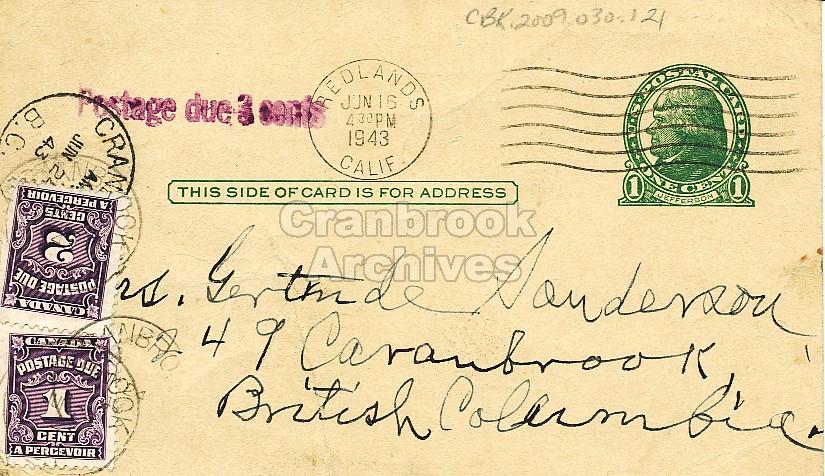 CBK.2009.030.121
Postage due 3 cents
REDLANDS
JUN 16
4 30 PM
1943
CALIF.
U.S. POSTAL CARD
1 ONE CENT 1
JEFFERSON
THIS SIDE OF CARD IS FOR ADDRESS
CRANBROOK
B.C.
AM
JUN 2
43
Cranbrook
Archives
CANADA
POSTAGE DUE
2
CENTS
A PERCEVOIR
CANADA
POSTAGE DUE
1
CENT
A PERCEVOIR
rs. Gertrude Sanderson
49 Caranbrook,
British Columbia.